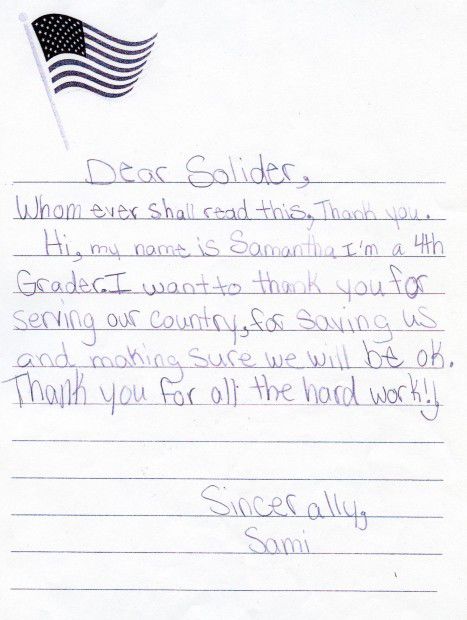 Dear Solider,
Whom ever shall read this, Thank you.
Hi, my name is Samantha I'm a 4th
Grader. I want to thank you for
serving our country, for saving us
and making sure we will be ok.
Thank you for all the hard work!!
Sincerally,
Sami